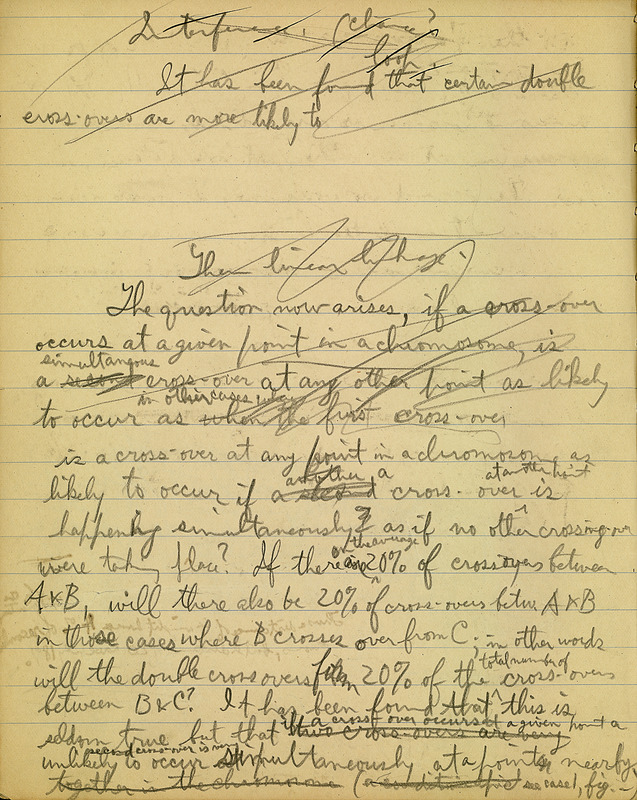 Interference. (chance?
loop.
It has been found that certain double
cross-overs are more likely to
The linear linkage.
The question now arises, if a cross-over
occurs at a given point in a chromosome, is
simultaneous
a second cross-over at any other point as likely
in other cases, when
to occur as when the first cross-over
is a cross-over at any point in a chromosome as
another a at another point
likely to occur if a second cross-over is
happening simultaneously? as if no other crossing-over
on the average
were taking place? If there are 20% of crossovers between
A & B, will there also be 20% of cross-overs betw. A & B
in those cases where B crosses over from C; in other words
total number of
will the double crossovers form 20% of the cross-overs
between B & C? It has been found that this is
if a cross over occurs at a given point a
seldom true but that two cross-overs are very
second cross-over is very
unlikely to occur simultaneously at a point nearby
together in the chromosome (a see case), fig. —